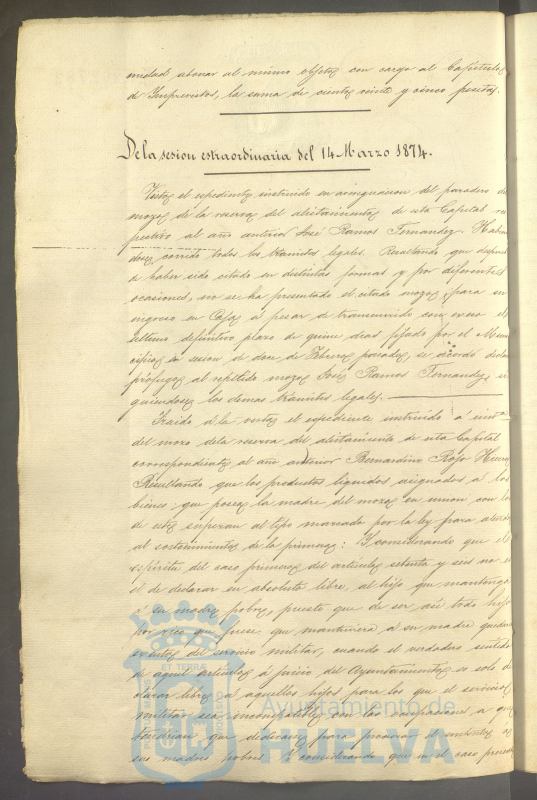 unidad abonar al mismo objeto con cargo al Capitulo
de Imprevistos, la suma de ciento veinte y cinco pesetas.
De la sesion estraordinaria del 14 Marzo 1874.
Visto el espediente instruido en averiguacion del paradero de
mozo de la reserva del alistamiento de esta Capital res
pectivo al año anterior José Ramos Fernandez. Habien
dose corrido todos los tramites legales. Resultando que despues
de haber sido citado en distintas formas y por diferentes
ocasiones, no se ha presentado el citado mozo, para su
ingreso en Caja á pesar de transcurrido con esceso el
ultimo definitivo plazo de quince dias fijado por el Muni
cipio en sesion de doce de Febrero pasado, se acordó declarar
prófugo al repetido mozo José Ramos Fernandez, si
guiendose los demas tramites legales.
Traido á la vista el espediente instruido á
del mozo de la reserva del alistamiento de esta Capital
correspondiente al año anterior Bernardino Rojo
Resultando que los productos liquidos asignados á los
bienes que posee la madre del mozo en union con los
de este superan al tipo marcado por la ley para atender
al sostenimiento de la primera: Y considerando que el
espiritu del caso primero del articulo setenta y seis no es
el de declarar en absoluto libre, al hijo que mantenga
á su madre pobre, puesto que de ser asi todo hijo
por rico que fuese que mantuviera á su madre quedaria
exento del servicio militar, cuando el verdadero sentido
de aquel articulo á juicio del Ayuntamiento es solo de
librar á aquellos hijos para los que el servicio
militar sea incompatible con las ocupaciones a que
tendrian que dedicarse para procurar el sustento de
sus madres pobres. Y considerando que en el caso presente
ET TERRÆ
Ayuntamiento de
HUELVA